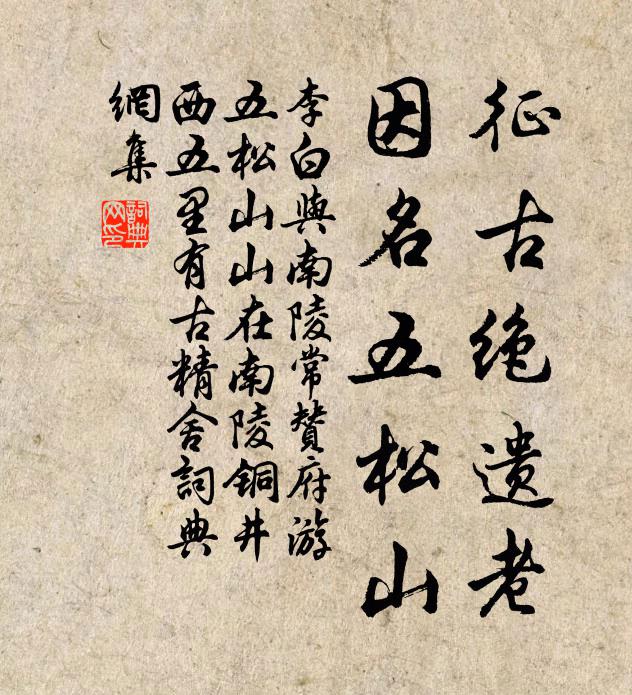 征古绝遗老
因名五松山
李白與南陵常贊府游
五松山山在南陵铜井
西五里有古精舍詞典
網集
詞典
网印